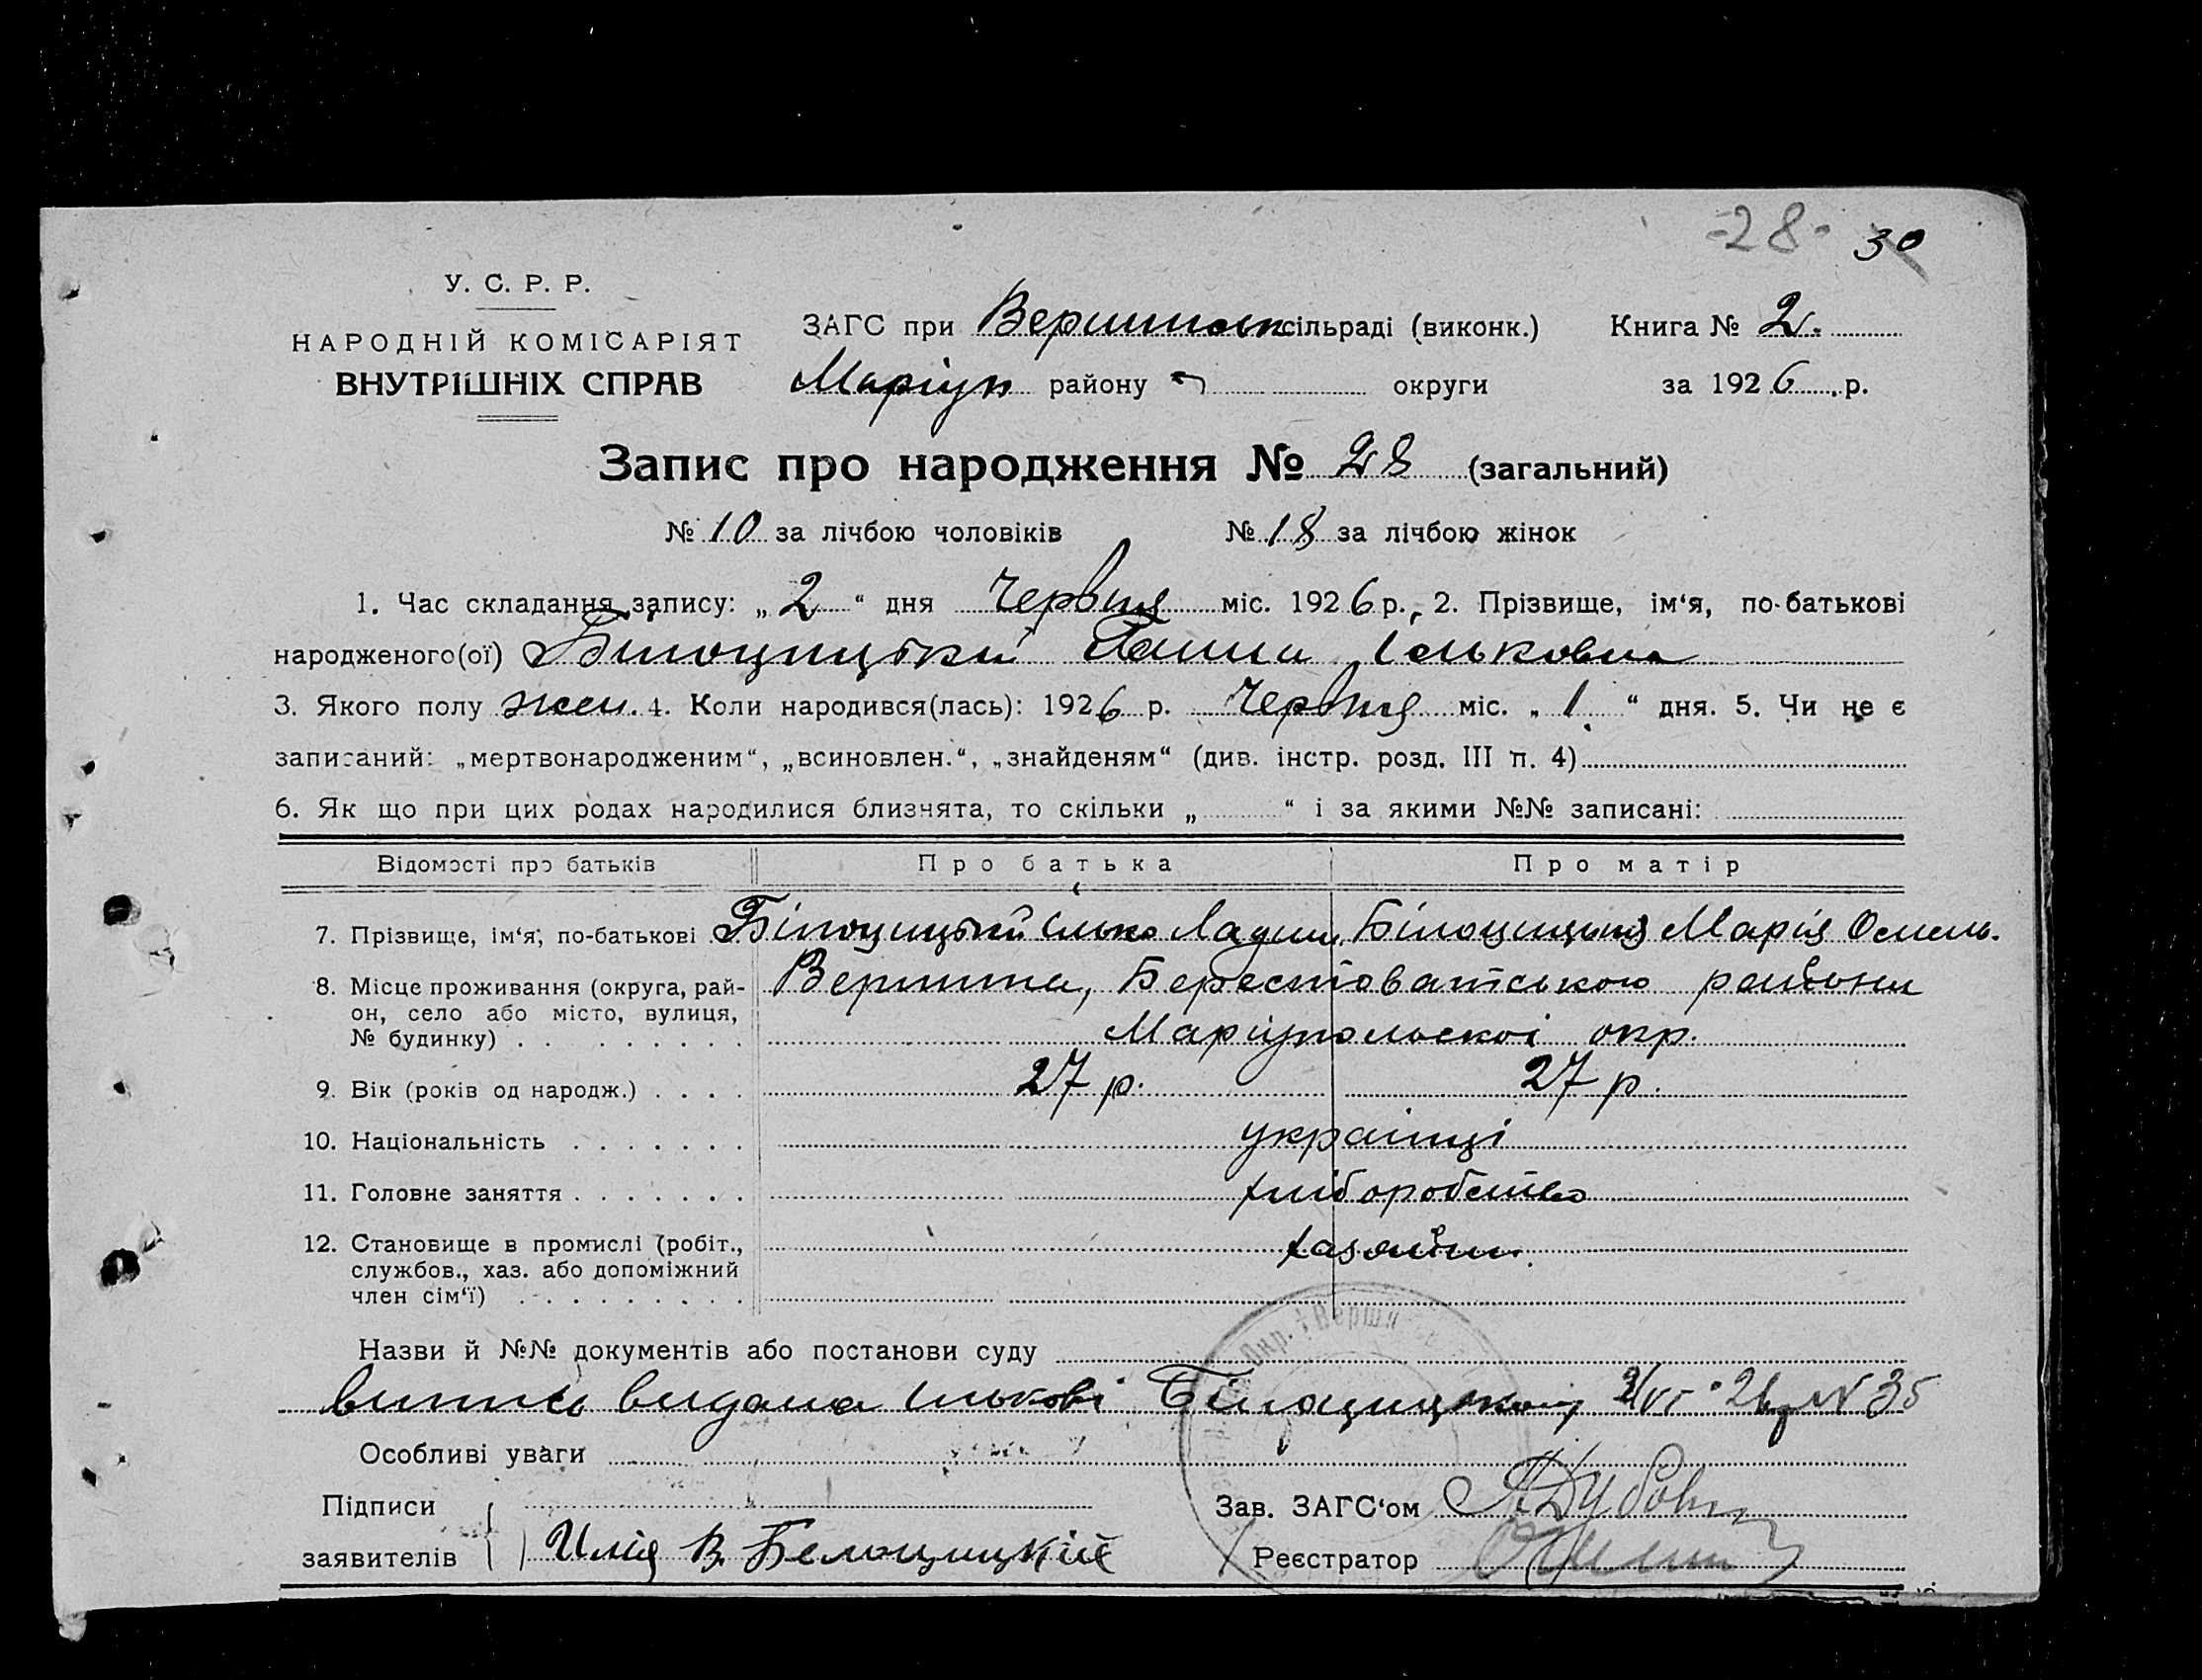 -28- 30
У. С. Р. Р.
НАРОДНІЙ КОМІСАРІЯТ
ВНУТРІШНІХ СПРАВ
ЗАГС при Вершинськ сільраді (виконк.) Книга № 2.
Маріуп району округи за 1926 р.
Запис про народження № 28 (загальний)
№ 10 за лічбою чоловіків № 18 за лічбою жінок
1. Час складання запису: „2“ дня Червня міс. 1926 р. 2. Прізвище, ім‘я, по-батькові
народженого(ої) Білоцицька Ганна Ільковна
3. Якого полу жен. 4. Коли народився(лась): 1926 р. Червня міс. „1“ дня. 5. Чи не є
записаний: „мертвонародженим“, „всиновлен.“, „знайденям“ (див. інстр. розд. III п. 4)
6. Як що при цих родах народилися близнята, то скільки „ “ і за якими №№ записані:
Відомості про батьків Про батька Про матір
7. Прізвище, ім‘я, по-батькові Білоцицький Ілько Білоцицька Марія Омель.
8. Місце проживання (округа, рай- Вершина, Берестоватського района
он, село або місто, вулиця,
№ будинку) Маріупольскої окр.
9. Вік (років од народж.) 27 р. 27 р.
10. Національність українці
11. Головне заняття хліборобство
12. Становище в промислі (робіт., хазяїни.
службов., хаз. або допоміжний
член сім‘ї)
Назви й №№ документів або постанови суду
випись виданаІлькові Білоцицькому 2/VI 26р № 35
Особливі уваги
Підписи Зав. ЗАГС‘ом
заявителів Илія В. Белоцицкій Реєстратор